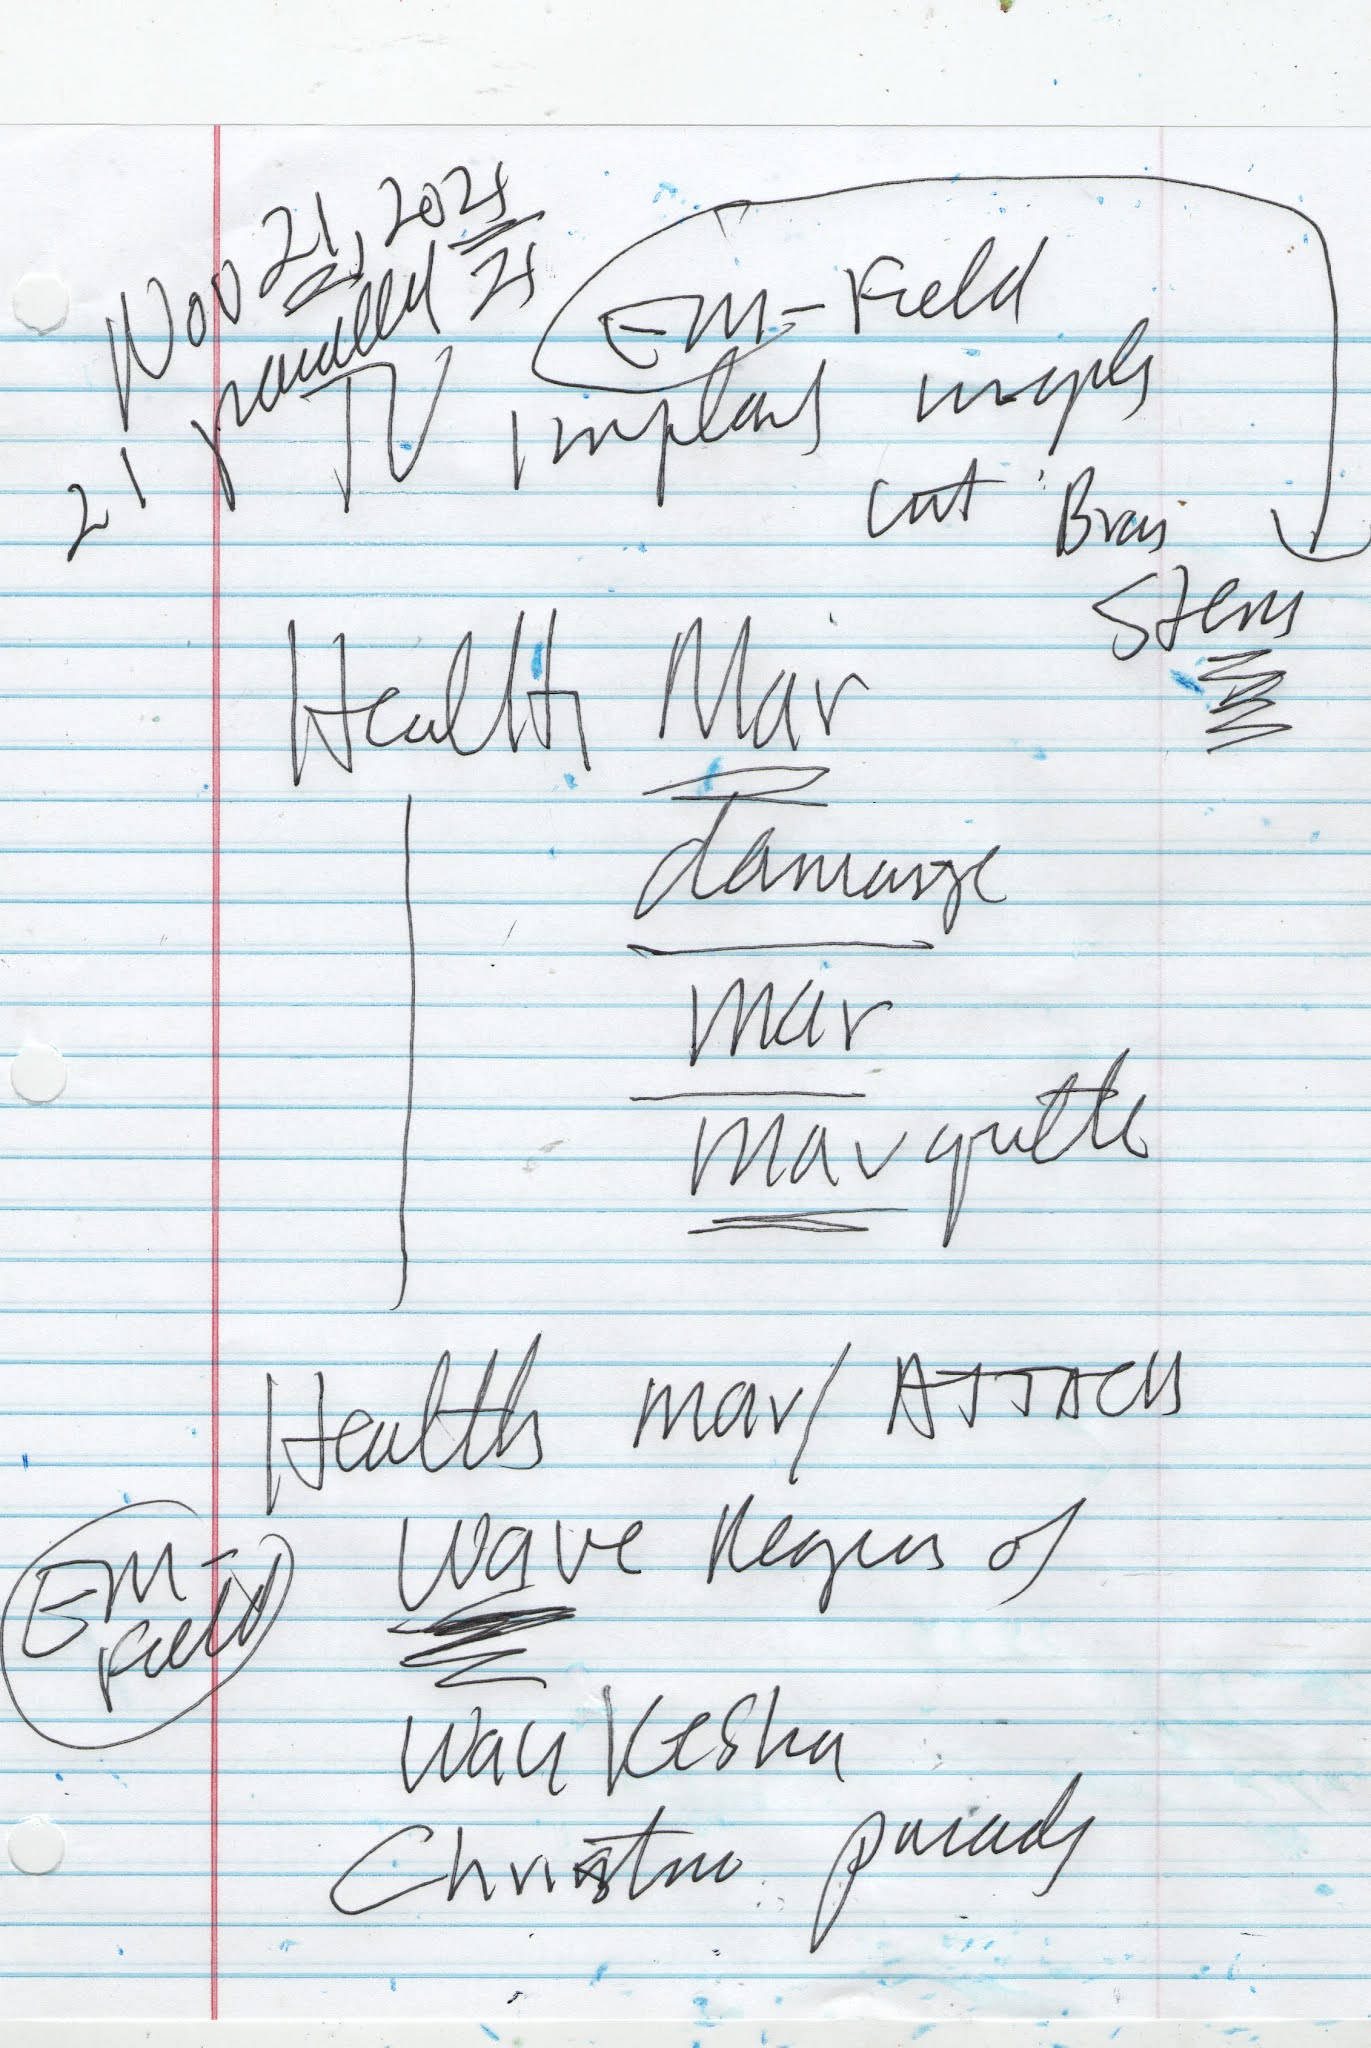 Nov 21, 2021
21 parallel 21
TV
EM-Field
Implants
cut Brain
Stems
Health Mar
damage
mar
marquette
Health mar/ ATTACK
wave Regions of
EM-
Field
Waukesha
Christmas parade